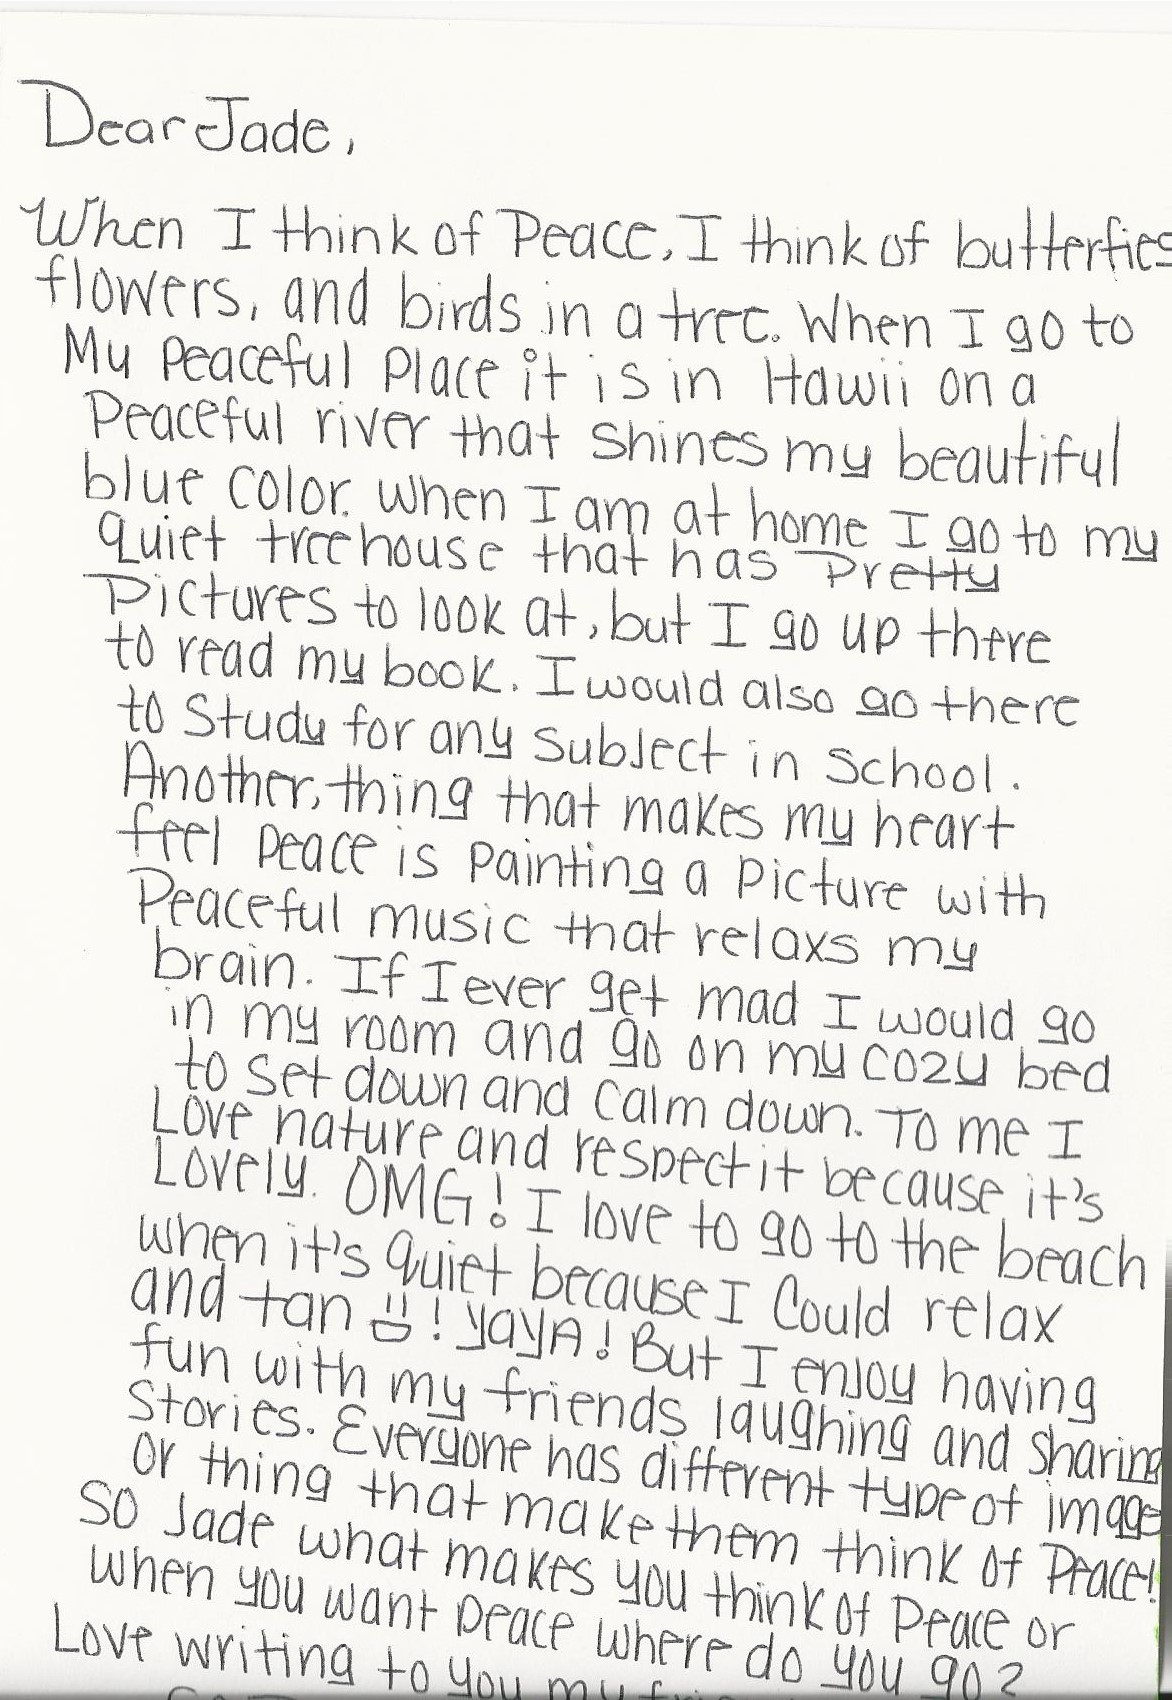 Dear Jade,
When I think of Peace, I think of butterfies
flowers, and birds in a tree. When I go to
My Peaceful Place it is in Hawii on a
Peaceful river that shines my beautiful
blue color. when I am at home I go to my
quiet treehouse that has Pretty
Pictures to look at, but I go up there
to read my book. I would also go there
to Study for any subject in school.
Another, thing that makes my heart
feel peace is painting a picture with
Peaceful music that relaxs my
brain. If I ever get mad I would go
in my room and go on my cozy bed
to set down and calm down. To me I
Love nature and respect it because it's
Lovely. OMG! I love to go to the beach
when it's quiet because I could relax
and tan ! yayA! But I enjoy having
fun with my friends laughing and sharing
Stories. Everyone has different type of image
or thing that make them think of Peace!
So Jade what makes you think of Peace or
when you want peace where do you go?
Love writing to you my